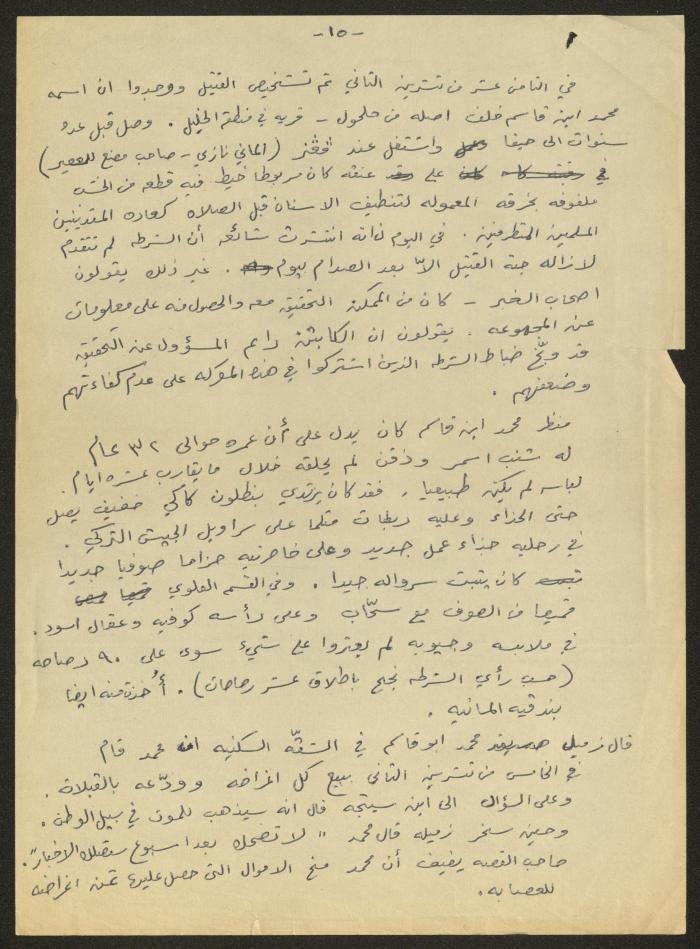 -١٥-
في الثامن عشر من تشرين الثاني تم تشخيص القتيل ووجدوا ان اسمه
محمد ابن قاسم خلف اصله من حلحول - قريه في منطقة الخليل . وصل قبل عدة
سنوات الى حيفا واشتغل عند ڤغنر (الماني نازي - صاحب مصنع للعصير)
في رقبته كان على عنقه كان مربوطا خيط فيه قطعه من الخشب
ملفوفه بخرقه المعموله لتنظيف الاسنان قبل الصلاه كعاده المتدينين
المسلمين المتطرفين . في اليوم ذاته انتشرت شائعه أن الشرطه لم تتقدم
لازاله جثة القتيل الاّ بعد الصدام بيوم . غير ذلك يقولون
اصحاب الخبر - كان من الممكن التحقيق معه والحصول منه على معلومات
عن المجموعه . يقولون ان الكابتن رايم المسؤول عن التحقيق
قد وبّخ ضباط الشرطه الذين اشتركوا في هذه المعركه على عدم كفاءتهم
وضعفهم .
منظر محمد ابن قاسم كان يدل على أن عمره حوالي ٣٢ عام
له شنب اسمر وذقن لم يحلقه خلال ما يقارب عشره ايام .
لباسه لم يكن طبيعيا ، فقد كان يرتدي بنطلون كاكي خفيف يصل
حتى الحذاء وعليه ربطات مثلما على سراويل الجيش التركي .
في رجليه حذاء عمل جديد وعلى خاصرتيه حزاما صوفيا جديدا
كان يثبت سرواله جيدا . وفي القسم العلوي
قميصا من الصوف مع سحّاب وعلى رأسه كوفيه وعقال اسود .
في ملابسه وجيوبه لم يعثروا على شيء سوى على ٩٠ رصاصه
(حسب رأي الشرطه نجح باطلاق عشر رصاصات) . أُخذت منه ايضا
بندقيه المانيه .
قال زميل محمد ابو قاسم في الشقّه السكنيه ان محمد قام
في الخامس من تشرين الثاني ببيع كل اغراضه وودّعه بالقبلات .
وعلى السؤال الى اين سيتجه قال انه سيذهب للموت في سبيل الوطن .
وحين سخر زميله قال محمد " لا تضحك بعد اسبوع ستصلك الاخبار ".
صاحب القصه يضيف أن محمد منح الاموال التي حصل عليها ثمن اغراضه
للعصابه .